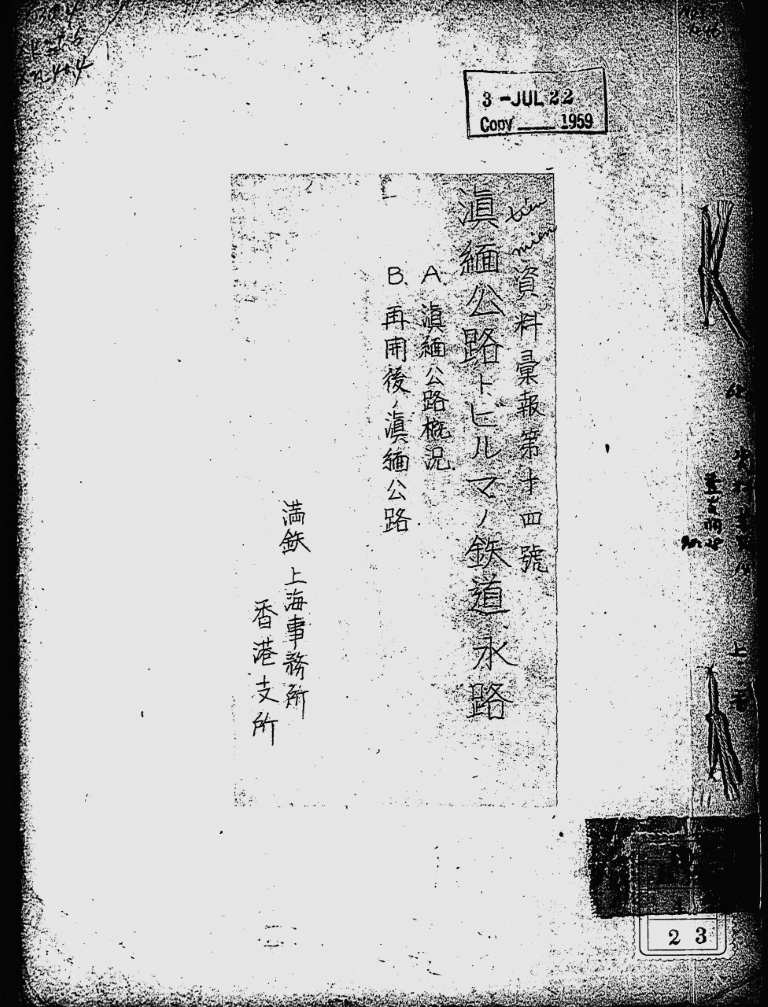 3-JUL 22
Copy 1959
資料彙報第十四號
滇緬公路トビルマノ鉄道水路
A. 滇緬公路概況
B. 再開後ノ滇緬公路
満鉄上海事務所
香港支所
23